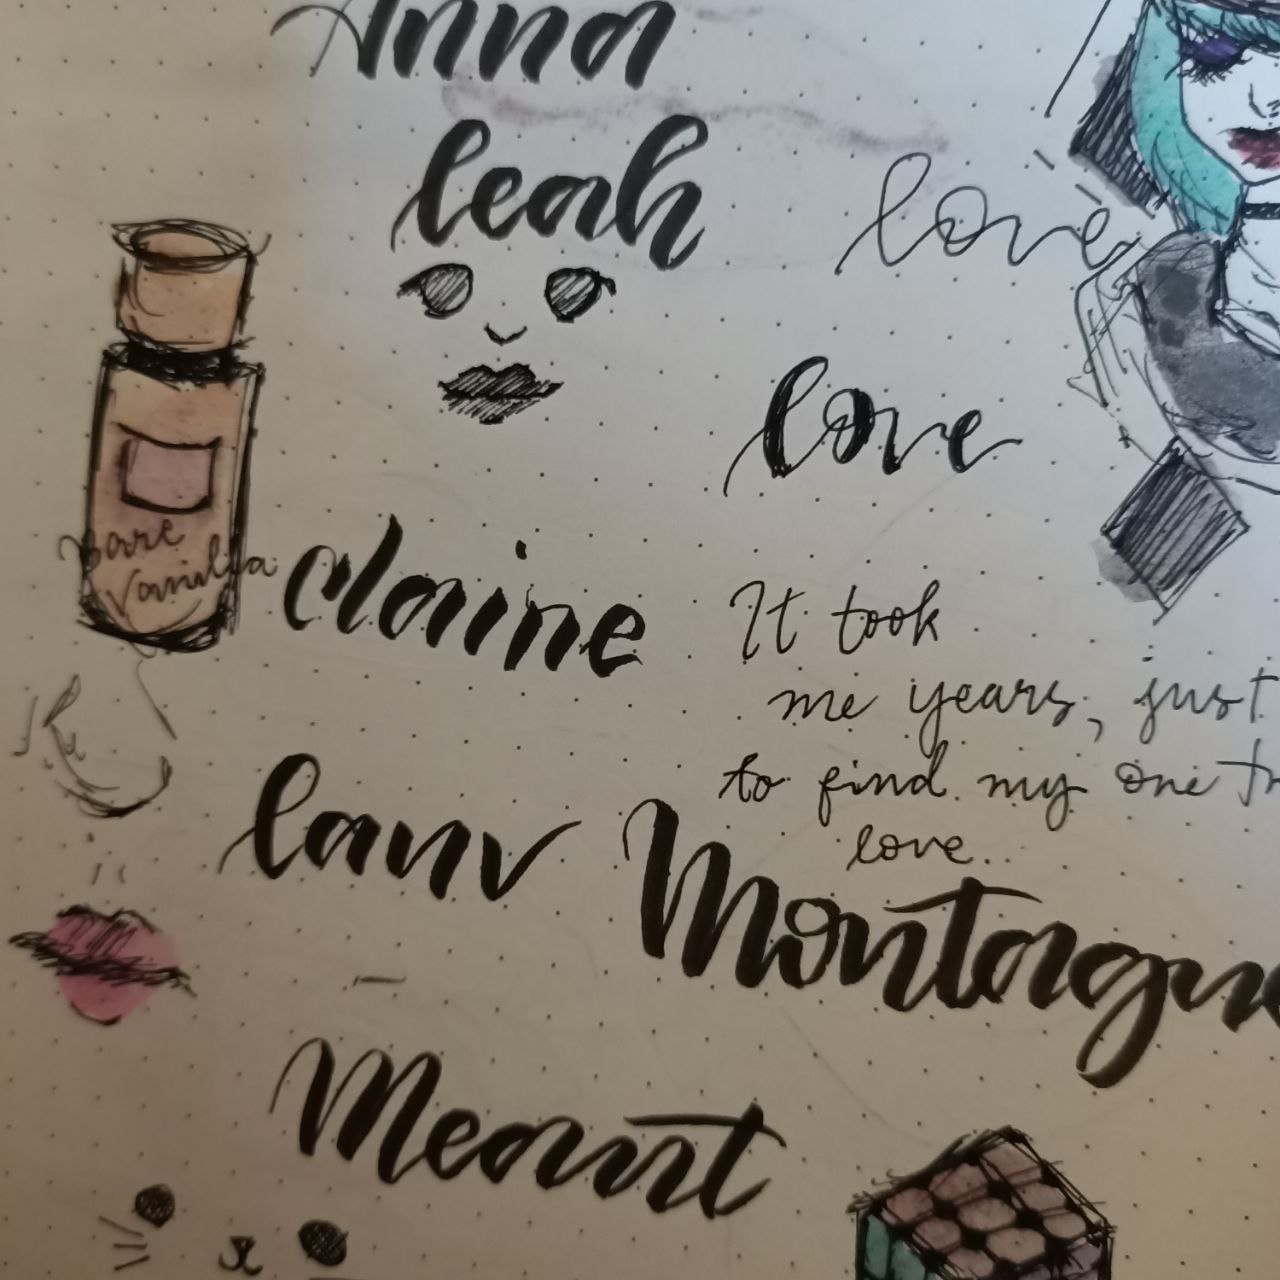 Anna
leah
love
love
Bare
Vanilla
claine
It took
me years, just
to find my one tr
love..
lanv
Montague
Meant